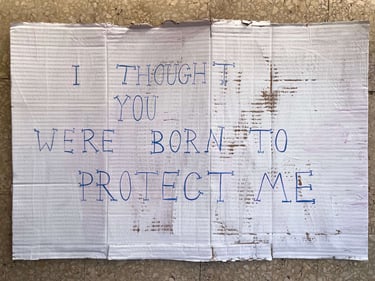 I THOUGHT
YOU
WERE BORN TO
PROTECT ME